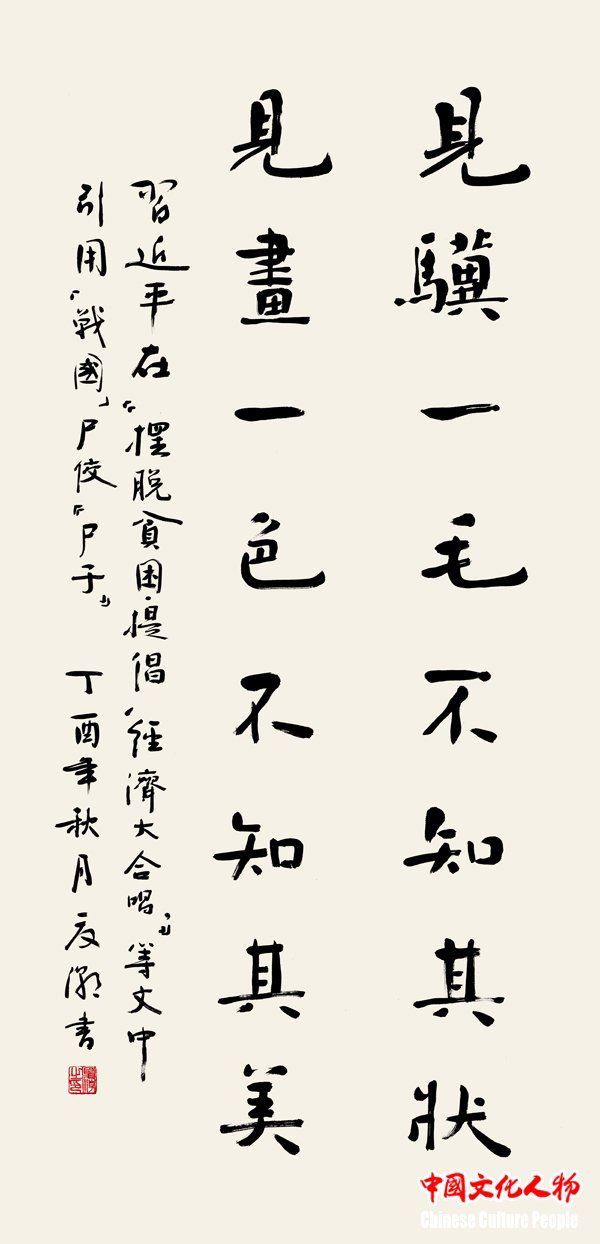 見驥一毛不知其狀
見畫一色不知其美
習近平在《擺脫貧困·提倡「經濟大合唱」》等文中
引用「戰國」尸佼《尸子》 丁酉年秋月 友灝书
中國文化人物
Chinese Culture People